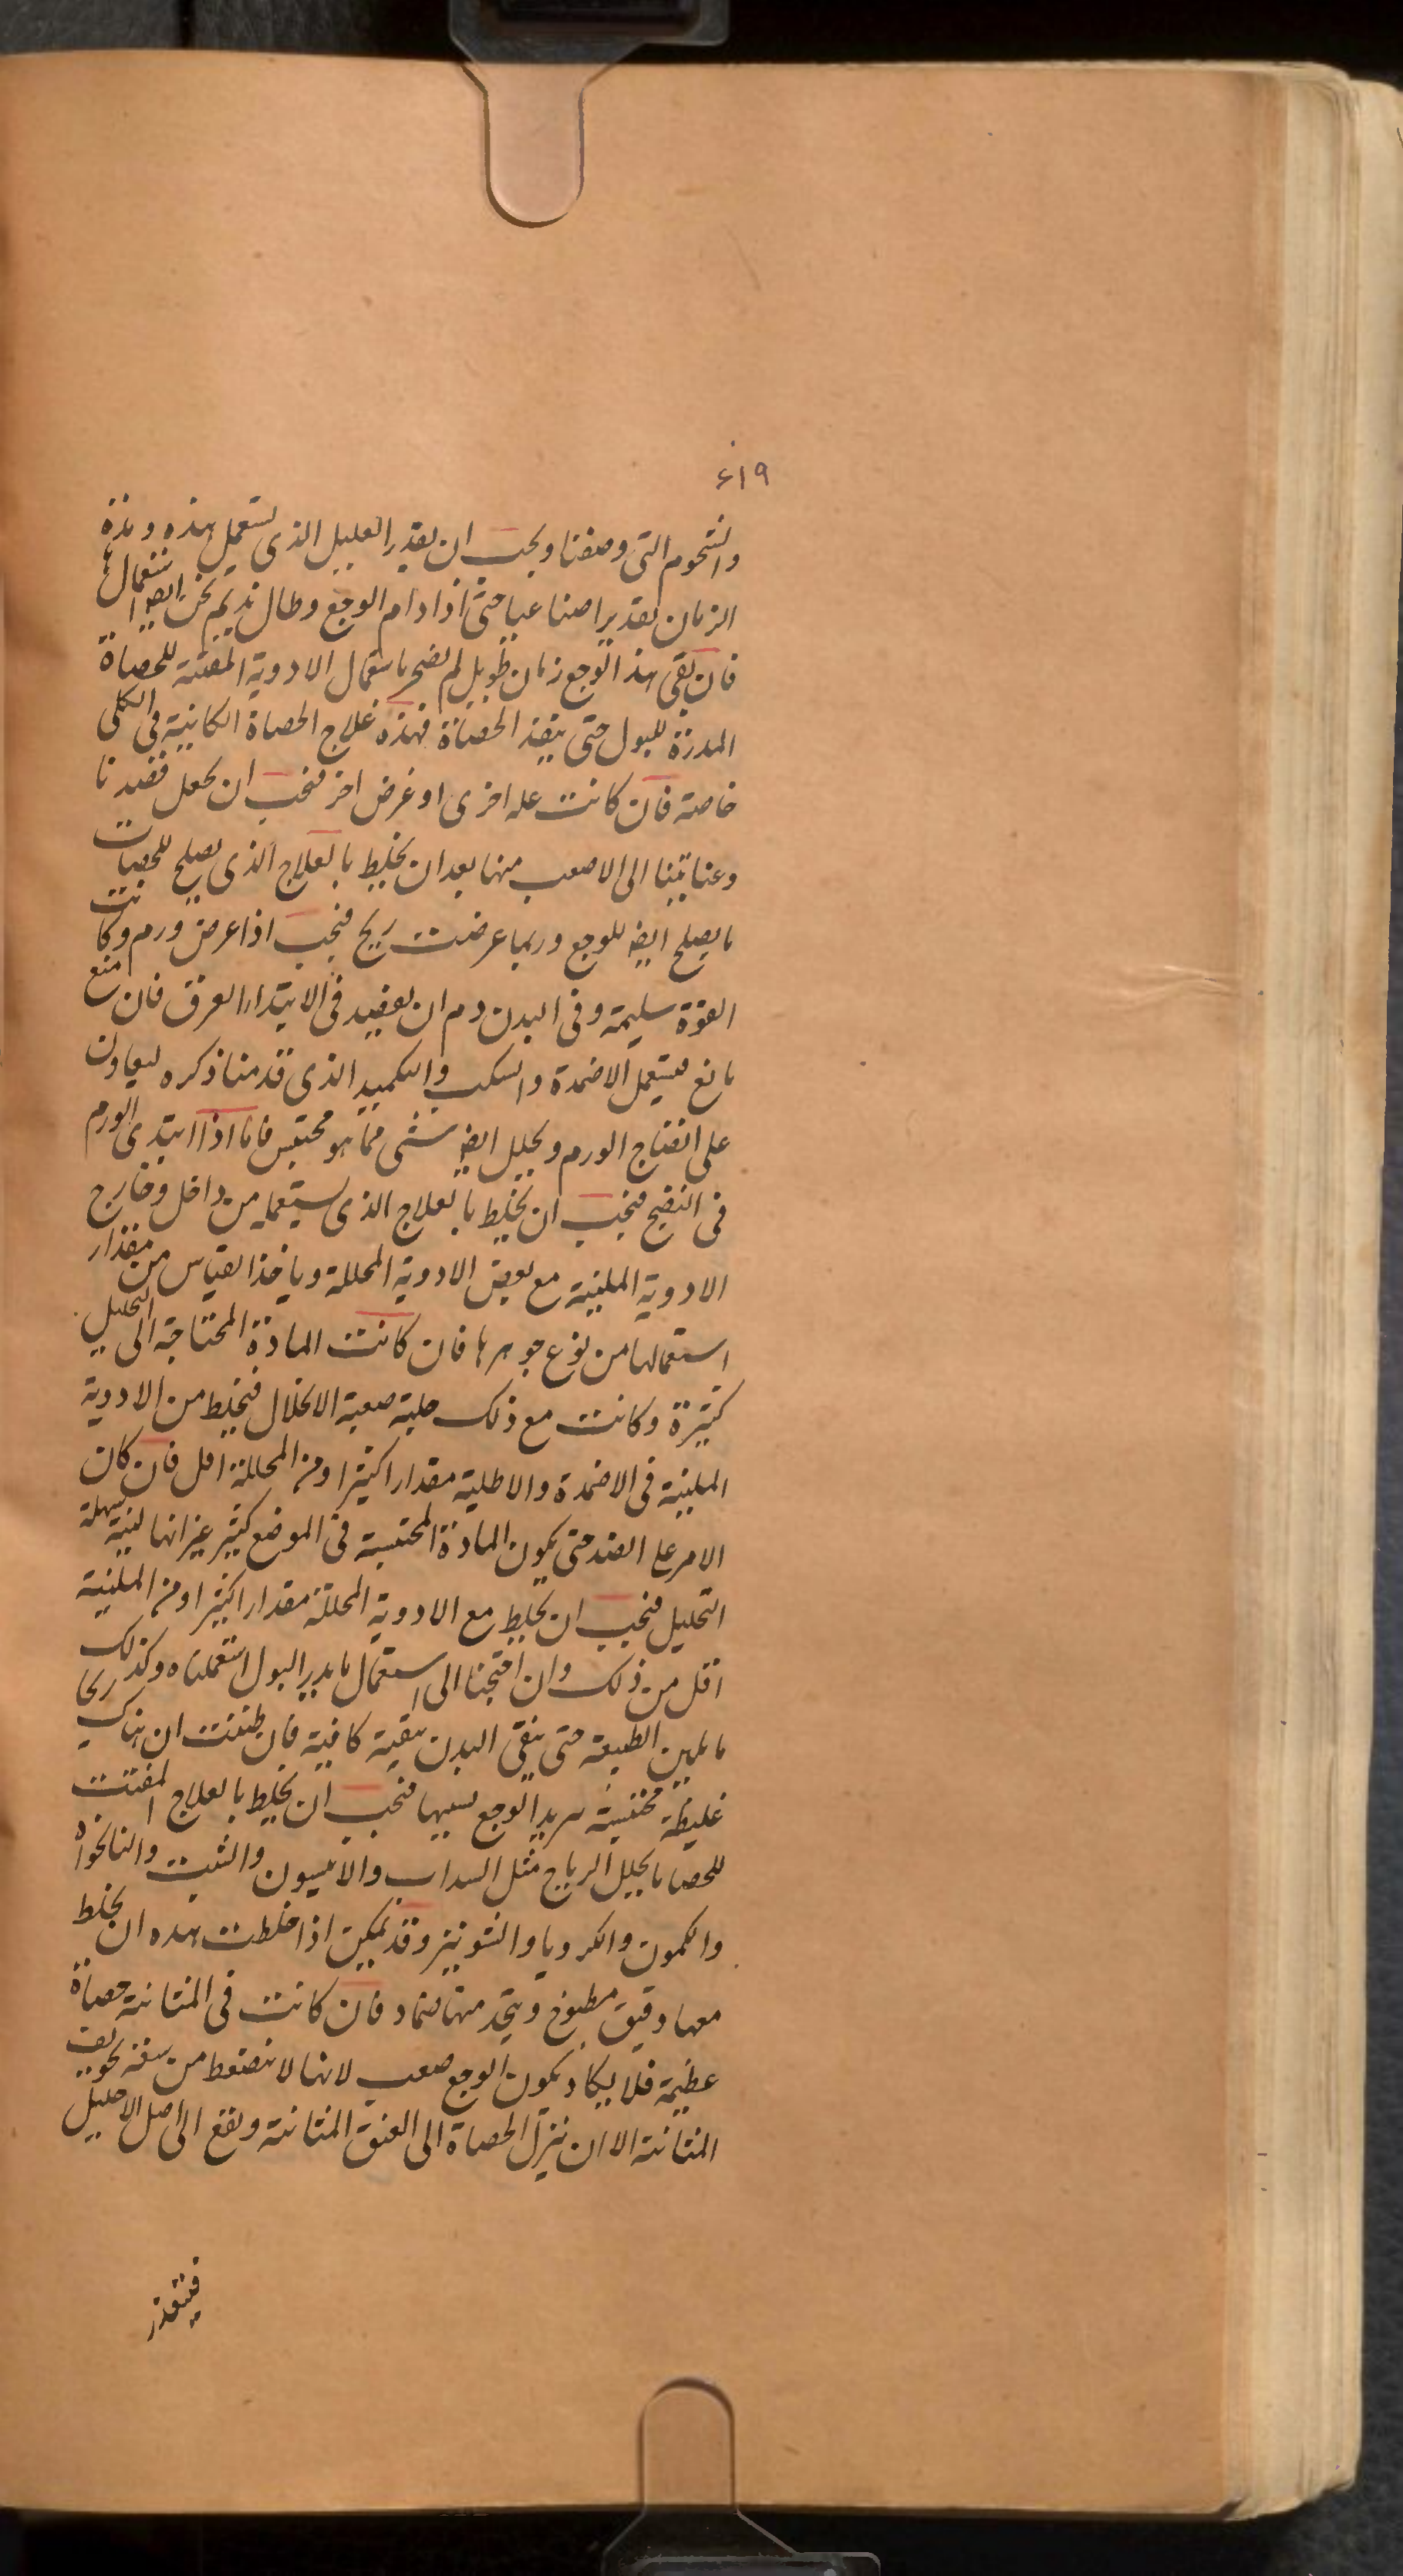 ٤١٩
والشحوم التى وصفنا ويجب ان يقدر العليل الذى يستعمل هذه ومدة
الزمان تقديرا صناعيا حتى اذا دام الوجع وطال نديم نحن ايضا استعمالها
فان بقى هذا الوجع زمان طويل لم نضجر باستعمال الادوية المفتتة للحصاة
المدرة للبول حتى ينفذ الحصاة فهذه علاج الحصاة الكائنة فى الكلى
خاصة فان كانت علة اخرى او عرض اخر فيجب ان يجعل قصدنا
وعنايتنا الى الاصعب منها بعد ان يخلط بالعلاج الذى يصلح للحصيات
ما يصلح ايضا للوجع وربما عرضت ريح فيجب اذا عرض ورم وكانت
القوة سليمة وفى البدن دم ان يفصد فى الابتداء العرق فان منع
مانع فيستعمل الاضمدة والسكب والتكميد الذى قدمنا ذكره ليعاون
على انضاج الورم ويحلل ايضا شى مما هو محتبس فاما اذا ابتدى الورم
فى النضج فيجب ان يخلط بالعلاج الذى يستعمله من داخل وخارج
الادوية الملينة مع بعض الادوية المحللة وياخذ القياس من مقدار
استعمالها من نوع جوهرها فان كانت المادة المحتاجة الى التحليل
كثيرة وكانت مع ذلك صلبة صعبة الانحلال فيخلط من الادوية
الملينة فى الاضمدة والاطلية مقدار اكثر ومن المحللة اقل فان كان
الامر على الضد حتى يكون المادة المحتبسة فى الموضع كثير غير انها لينة سهلة
التحليل فيجب ان يخلط مع الادوية المحللة مقدار اكثر ومن الملينة
اقل من ذلك وان احتجنا الى استعمال ما يدر البول استعملناه وكذلك
ما يلين الطبيعة حتى ينقى البدن تنقية كافية فان ظننت ان هناك ريحا
غليظة محتبسة يزيد الوجع بسببها فيجب ان يخلط بالعلاج المفتت
للحصا ما يحلل الرياح مثل السداب والانيسون والشبت والنانخواه
والكمون والكرويا والشونيز وقد يمكن اذا خلطت هذه ان يخلط
معها دقيق مطبوخ ويتخذ منها ضماد فان كانت فى المثانة حصاة
عظيمة فلا يكاد يكون الوجع صعب لانها لا ينضغط من سعة تجويف
المثانة الا ان ينزل الحصاة الى العنق المثانة ويقع الى اصل الاحليل